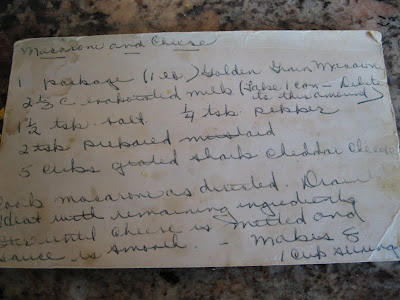 Macaroni and Cheese
1 package (1 lb) Golden Grain Macaroni
2 ½ C evaporated milk (take 1 can - Dilute
to this amount)
1 ½ tsp. salt. ¼ tsp. pepper
2 tsp prepared
5 cups grated sharp cheddar cheese
Cook macaroni as directed. Drain
Heat with remaining ingredients
until cheese is melted and
sauce is smooth. - Makes 8
1 cup